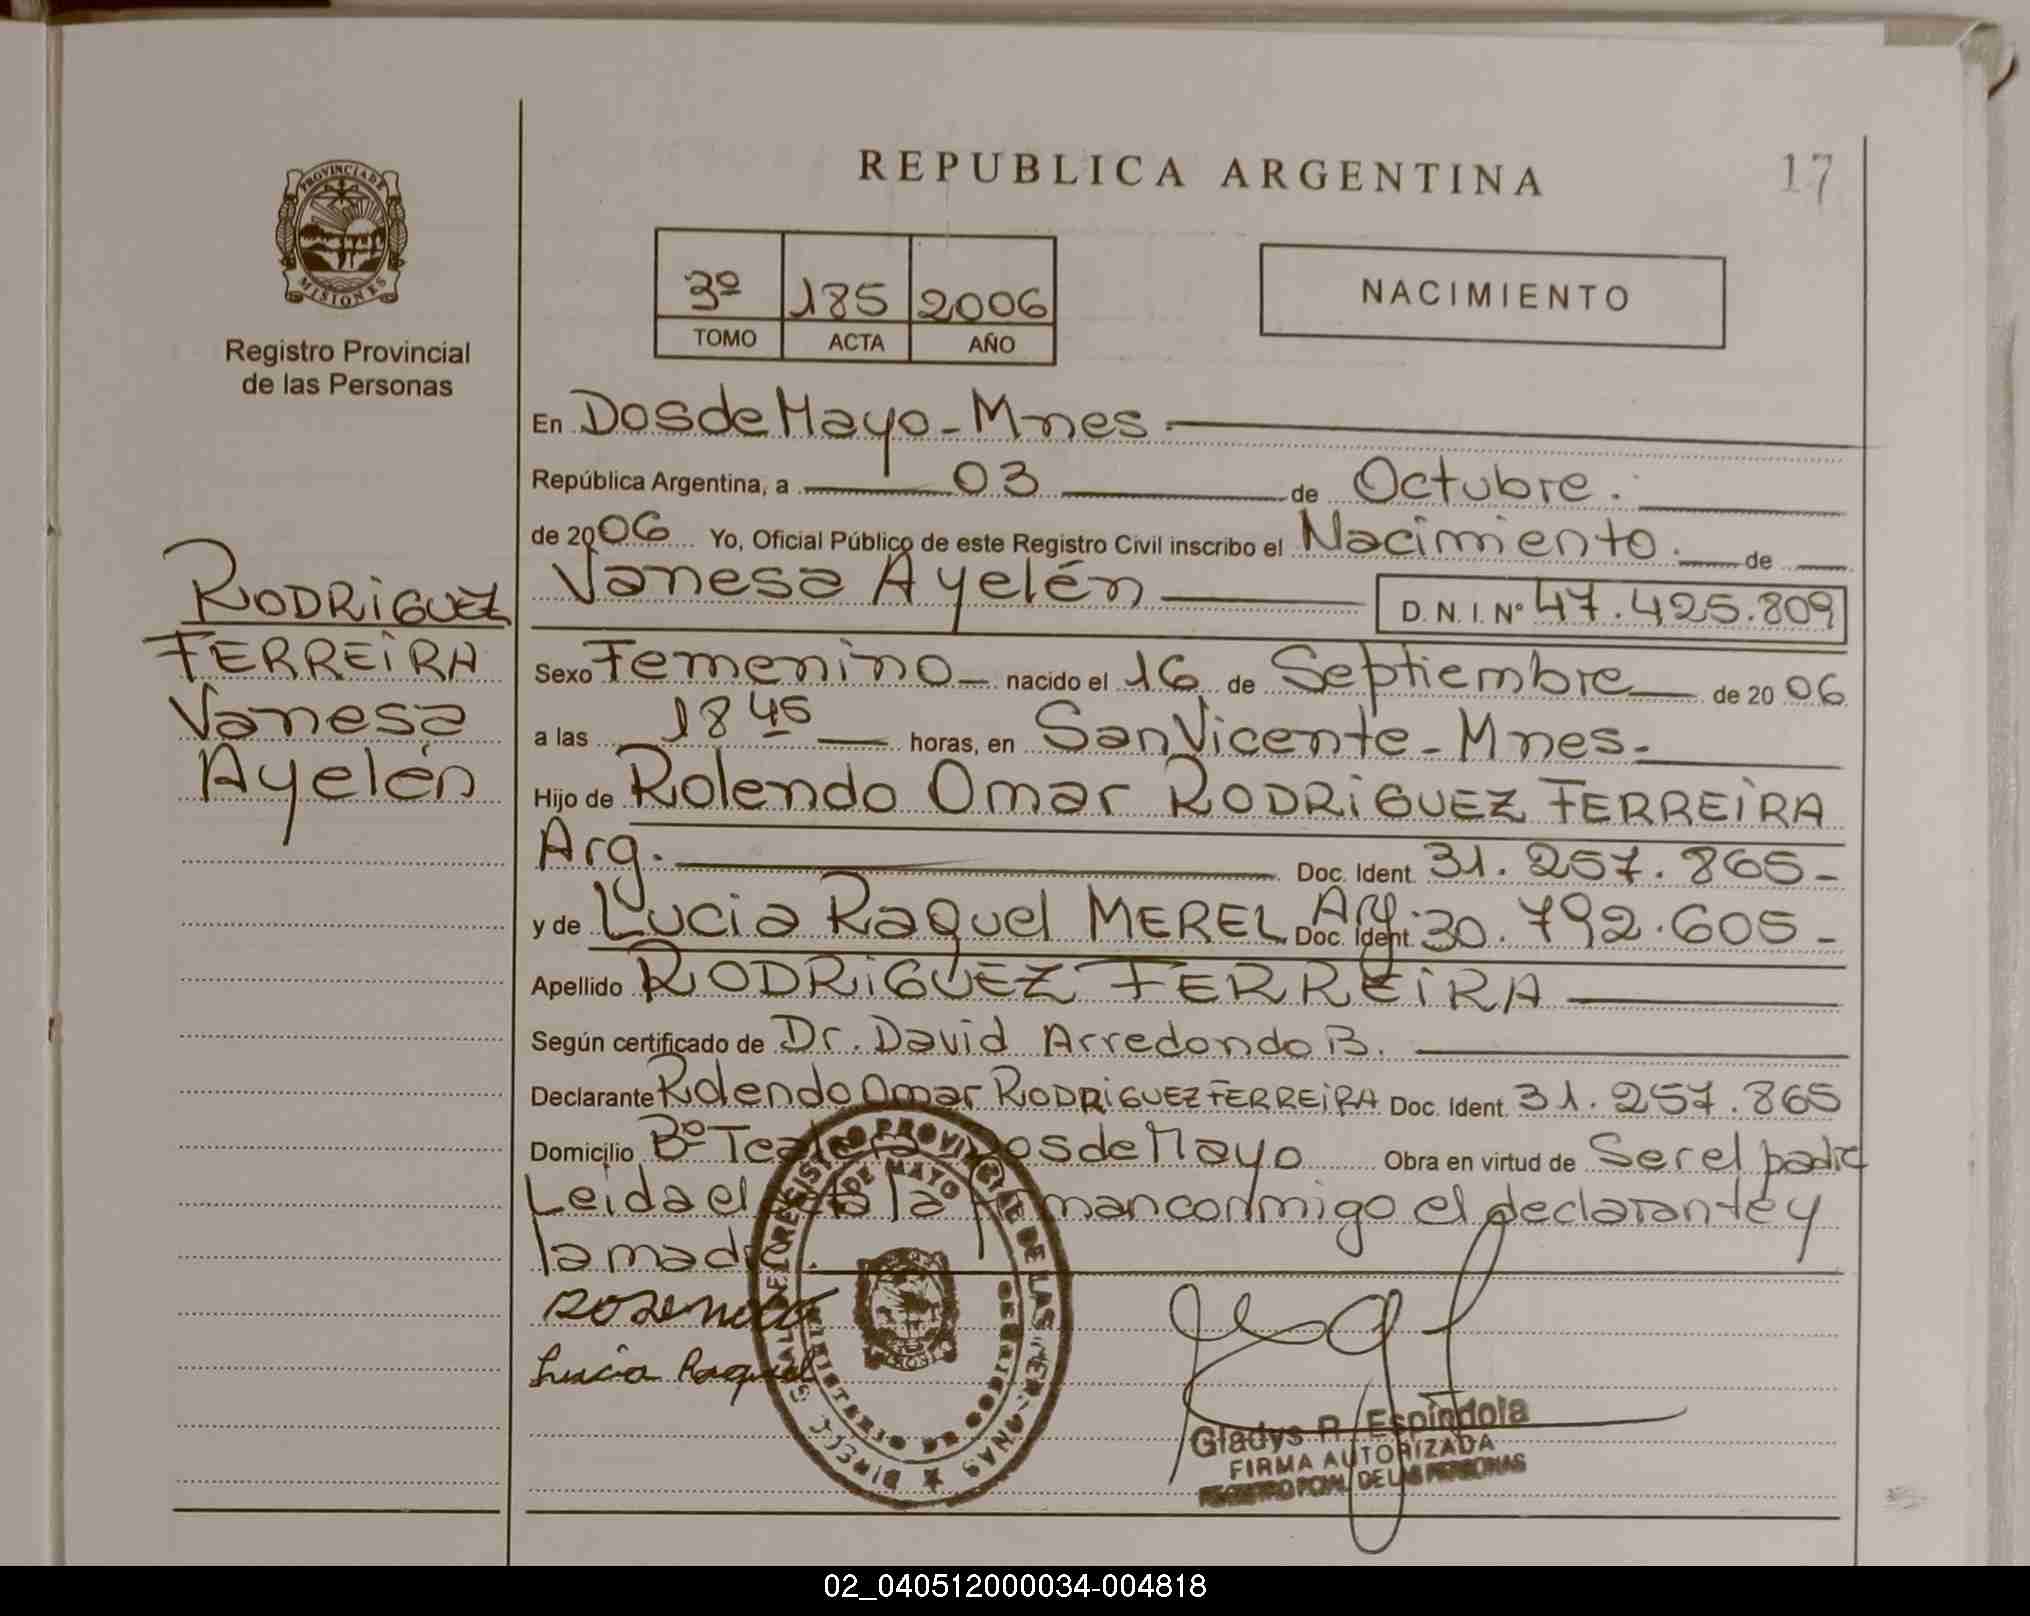 REPUBLICA ARGENTINA
17
PROVINCIA DE
MISIONES
Registro Provincial
de las Personas
3º 185 2006
TOMO ACTA AÑO
NACIMIENTO
RODRIGUEZ
FERREIRA
Vanesa
Ayelén
En Dos de Mayo - Mnes
República Argentina, a 03 de Octubre.
de 2006 Yo, Oficial Público de este Registro Civil inscribo el Nacimiento. de
Vanesa Ayelén D.N.I. Nº 47.425.809
Sexo Femenino nacido el 16 de Septiembre de 2006
a las 18 45 horas, en San Vicente - Mnes -
Hijo de Rolendo Omar RODRIGUEZ FERREIRA
Arg. Doc. Ident. 31.257.865-
y de Lucia Raquel MEREL Arg. Doc. Ident. 30.792.605-
Apellido RODRIGUEZ FERREIRA
Según certificado de Dr. David Arredondo B.
Declarante Rolendo Omar RODRIGUEZ FERREIRA Doc. Ident. 31.257.865
Domicilio Bº Dos de Mayo Obra en virtud de Ser el padre
Leida el la conmigo el declarante y
la madre.
Lucia Raquel
REGISTRO PROVINCIAL DE LAS PERSONAS
DE MAYO
MINISTERIO DE
MISIONES
Gladys R. Espíndola
FIRMA AUTORIZADA
REGISTRO PCIAL. DE LAS PERSONAS
02_040512000034-004818